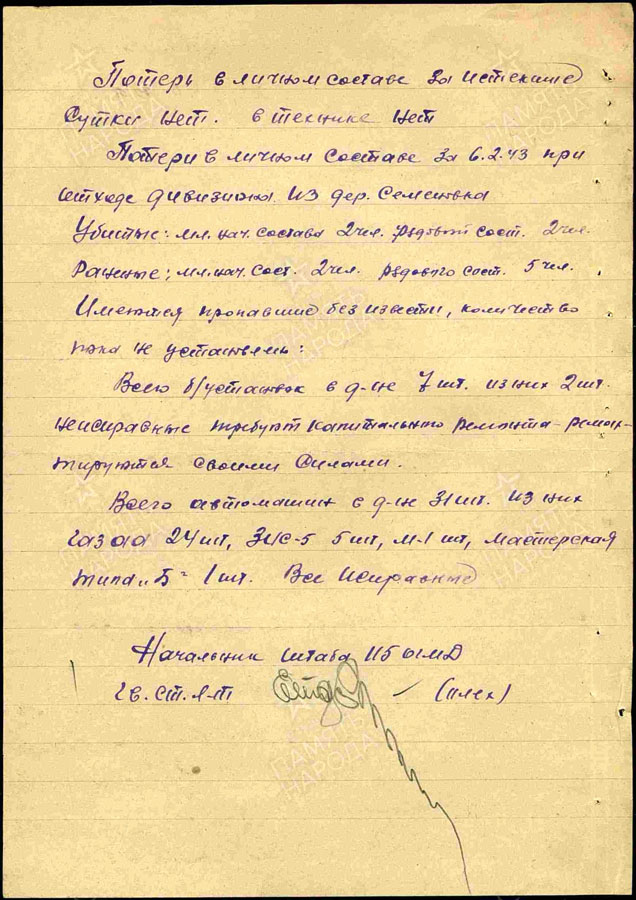 Потерь в личном составе за истекшие
сутки нет. в технике нет
Потери в личном составе за 6.2.43 при
отходе дивизиона из дер. Сементовка
Убитые: мл. нач. состава 2 чел. рядовой сост. 2 чел.
Раненые: мл. нач. сост. 2 чел. рядового сост. 5 чел.
Имеются пропавшие без извести, количество
пока не установлены:
Всего б/установок в д-не 7 шт. из них 2 шт.
неисправные требуют капитального ремонта - ремон-
тируются своими силами.
Всего автомашин в д-не 31 шт. из них
газ аа 24 шт, ЗИС-5 5 шт, М-1 шт, мастерская
типа „Б" 1 шт. Все исправные
Начальник штаба
гв. ст. л-т (плех)
ПАМЯТЬ
НАРОДА